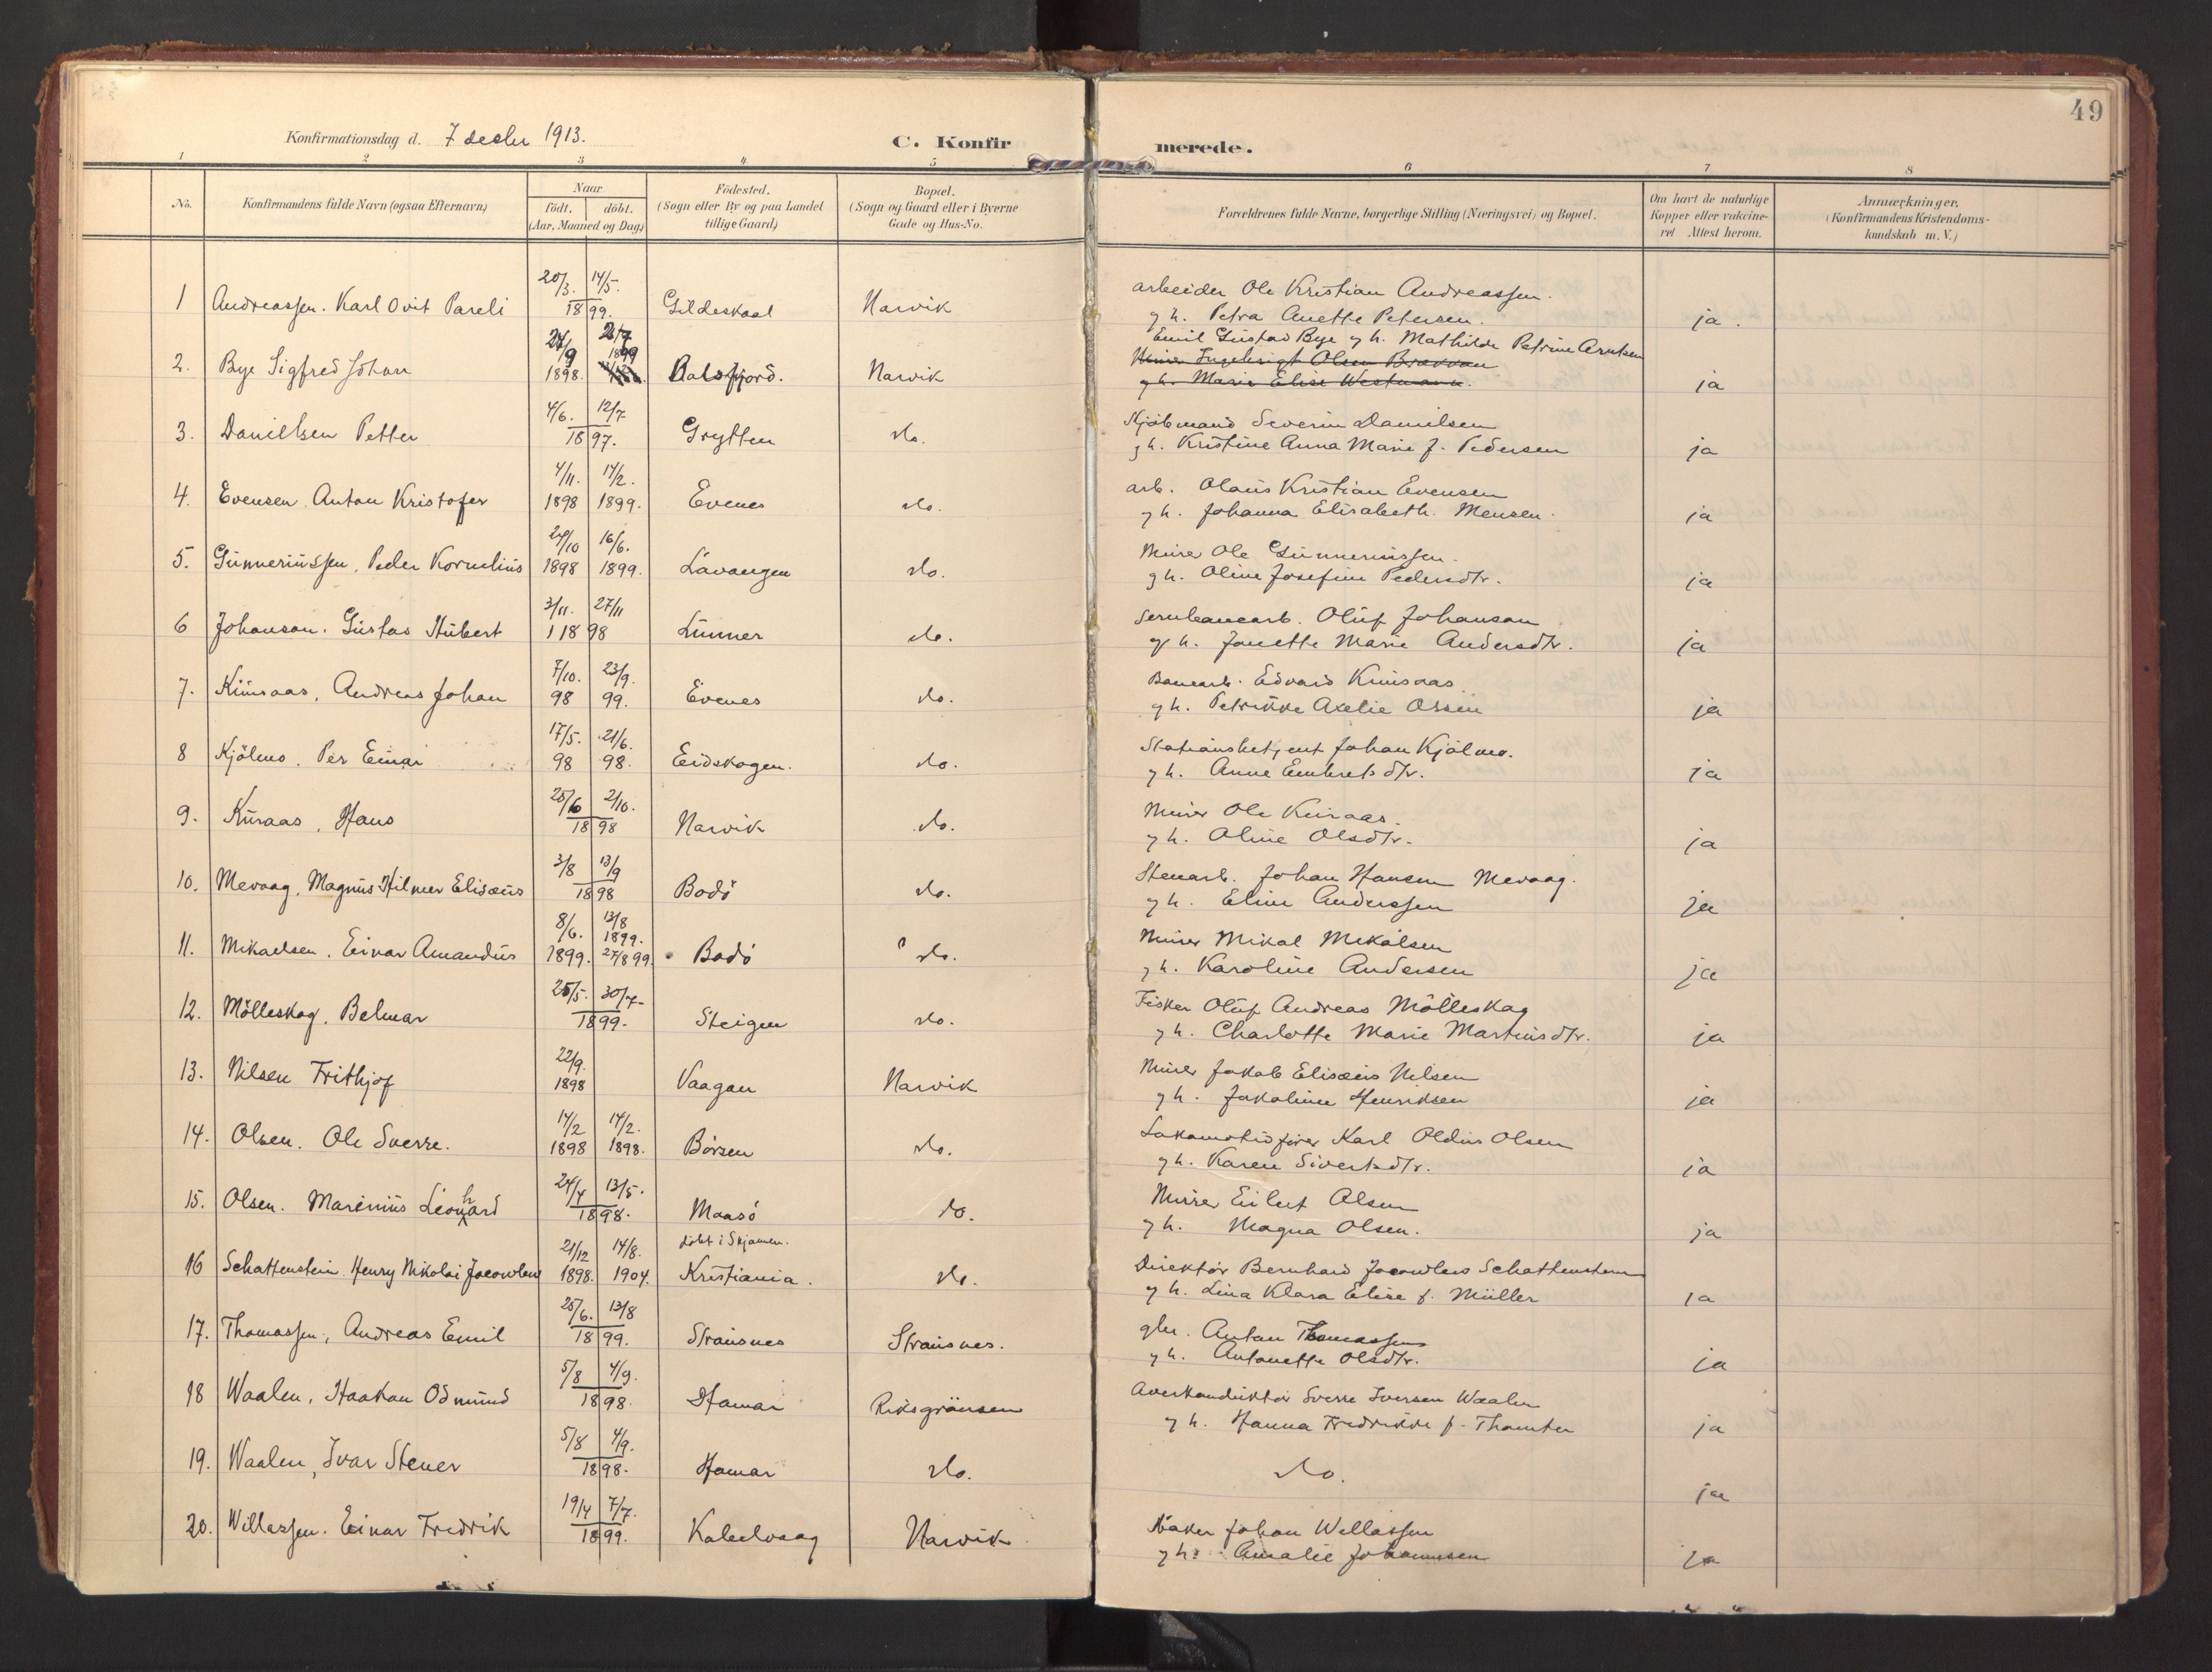 49
Konfirmationsdag d. 7 desbr 1913.
C. Konfirmerede.
1 2 3 4 5 6 7 8
No.
Konfirmandens fulde Navn (ogsaa Efternavn)
Naar
födt. döbt.
(Aar, Maaned og Dag)
Födested.
(Sogn eller By og paa Landet
tillige Gaard)
Bopæl.
(Sogn og Gaard eller i Byerne
Gade og Hus-No.
Forældrenes fulde Navne, borgerlige Stilling (Næringsvei) og Bopæl.
Om havt de naturlige
Kopper eller vakcine-
ret Attest herom.
Anmærkninger.
(Konfirmandens Kristendoms-
kundskab m. V.)
1 Andreassen. Karl Ovit Pareli 20/3. 14/5. 1899. Gildeskaal Narvik arbeider Ole Kristian Andreassen.
g h. Petra Anette Petersen. ja.
2. Bye Sigfred Johan 1898. 1899 Balsfjord. Narvik Emil Gustav Bye g h. Mathilde Petrine Arntsen
Murer Ingebrigt Olsen Brækkan
g h. Marie Elise Westmann. ja
3. Daniellsen Petter 4/6. 12/7 1897. Grytten do. Kjöbmand Severin Danielsen
g h. Kristine Anna Marie f. Pedersen ja
4. Evensen Anton Kristofer 4/11. 14/2. 1898 1899. Evenes do. arb. Olaus Kristian Evensen
g h. Johanna Elisabeth. Mensen. ja
5. Gunneriussen, Peder Kornelius 24/10 16/6. 1898 1899. Lavangen do. Murer Ole Gunneriussen.
g h. Oline Josefine Pedersdtr. ja
6 Johanson. Gustav Hubert 3/11. 27/11 1898 Lunner do. Jernbanearb. Oluf Johanson
g h. Janette Marie Andersdtr. ja
7. Kuusaas, Andreas Johan 7/10. 23/9. 98 99. Evenes do. Banearb. Edvard Kuusaas
g h. Petrikke Axelie Olsen ja
8 Kjölmo. Per Einar 17/5. 21/6. 98 98. Eidskogen. do. Stationsbetjent Johan Kjölmo.
g h. Anne Embretsdtr. ja
9. Kuraas, Hans 25/6 2/10. 1898 Narvik do. Murer Ole Kuraas.
g h. Oline Olsdtr. ja
10. Mevaag, Magnus Hilmer Elisæus 3/8 13/9 1898 Bodö do. Stenarb. Johan Hansen Mevaag.
g h. Eline Anderssen ja
11. Mikaelsen. Einar Amandus 8/6. 13/8 1899. 1899. 27/8 99. Bodö do. Murer Mikal Mikalsen
g h. Karoline Andersen ja
12. Mölleskog. Belmar 25/5. 30/7. 1899. Steigen do. Fisker Oluf Andreas Mölleskog
g h. Charlotte Marie Martinsdtr. ja
13. Nilsen Frithjof 22/9. 1898 Vaagan Narvik Murer Jakob Elisæus Nilsen
g h. Jakobine Henriksen ja
14. Olsen. Ole Sverre. 14/2 14/2. 1898 1898. Börsen do. Lokomotivförer Karl Oldin Olsen
g h. Karen Sivertsdtr. ja
15. Olsen. Marinius Leonhard 24/4 13/5. 1898. Maasö do. Murer Eilert Olsen
g h. Magna Olsen. ja
16 Schattenstein. Henry Nikolai Jacowlew 21/12 14/8. 1898. 1904. döbt i Skjomen. Kristiania. do. Direktör Bernhard Jacowlew Schattenstein
g h. Lina Klara Elise f. Müller ja
17. Thomassen, Andreas Emil 25/6. 13/8 1899. Straumsnes Straumsnes. gbr. Anton Thomassen
g h. Antonette Olsdtr. ja
18 Waalen, Haakon Odmund 5/8 4/9. 1898. Hamar Riksgränsen Sverre Iversen Waalen
g h. Hanna Fredrikke f. Thomter ja
19. Waalen, Ivar Stener 5/8 4/9. 1898. Hamar do. do. ja
20. Willassen. Einar Fredrik 19/4 7/7. 1899. Kabelvaag Narvik Baker Johan Willassen
g h. Amalie Johannesen ja